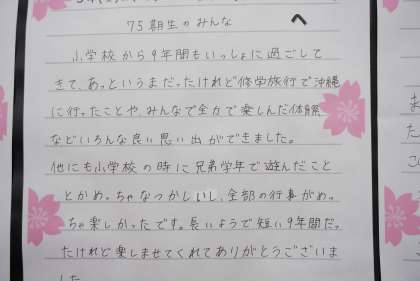 75期生のみんなへ
小学校から9年間もいっしょに過ごして
きて、あっというまだったけれど修学旅行で沖縄
に行ったことや、みんなで全力で楽しんだ体育祭
などいろんな良い思い出ができました。
他にも小学校の時に兄弟学年で遊んだこと
とかめっちゃなつかしいし、全部の行事がめっ
ちゃ楽しかったです。長いようで短い9年間だっ
たけれど楽しませてくれてありがとうございま
した